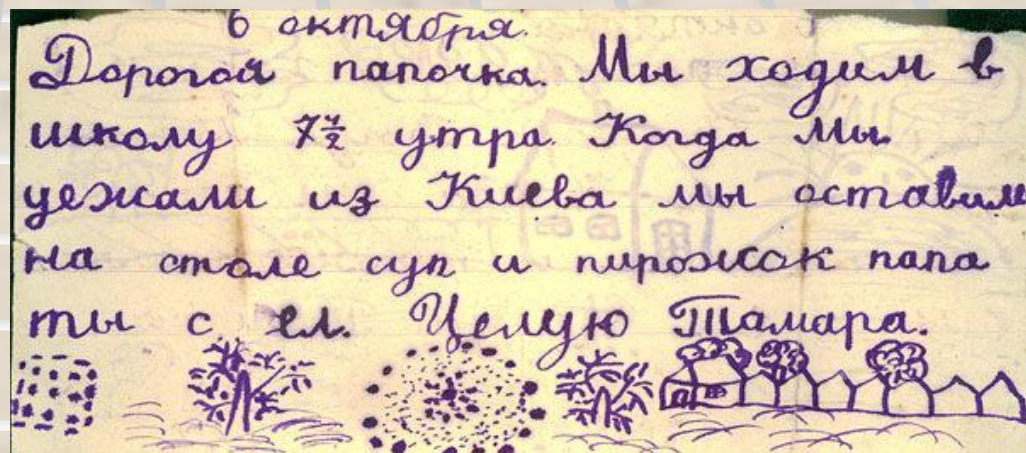 6 октября.
Дорогой папочка. Мы ходим в
школу 7½ утра. Когда мы
уежали из Киева мы оставили
на столе суп и пирожок папа
ты с ел. Целую Тамара.